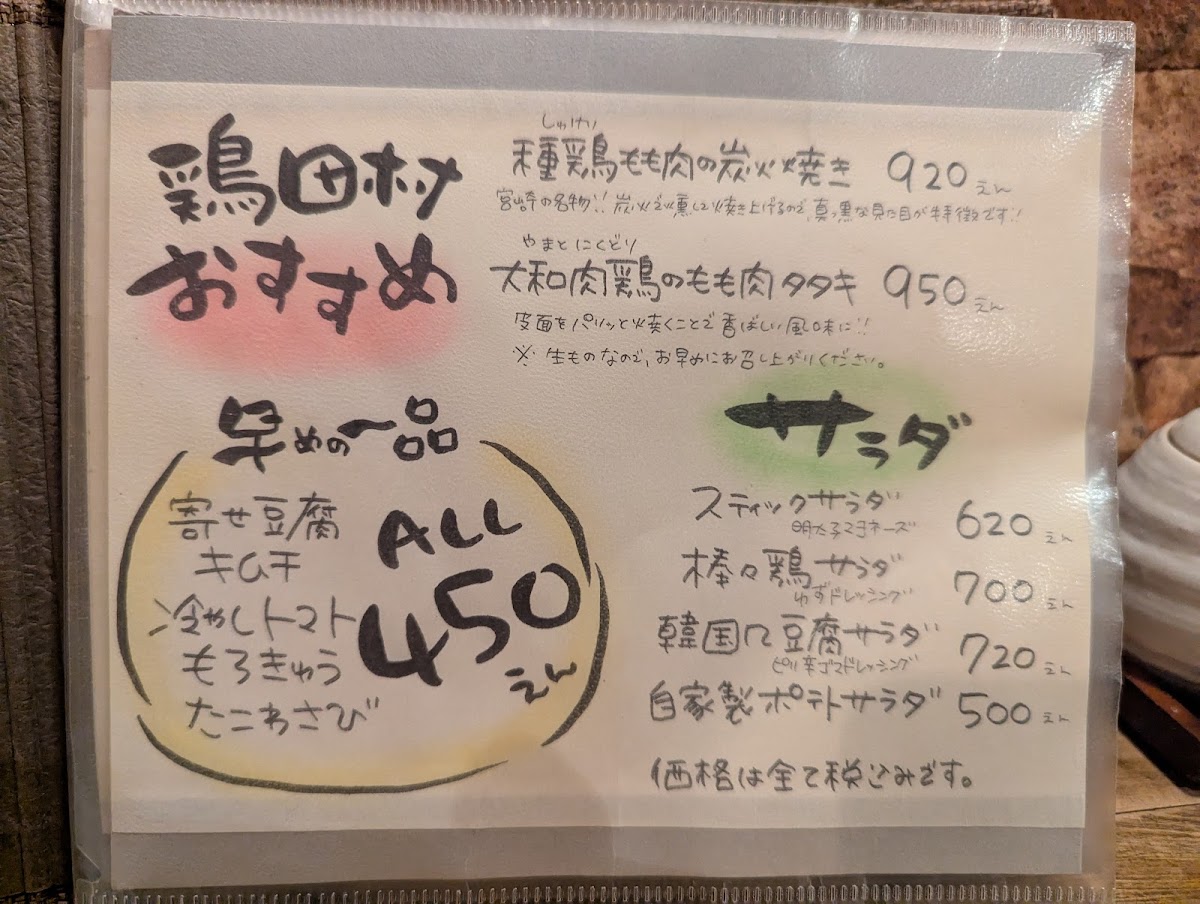 鶏田村
おすすめ
しゅけい
種鶏もも肉の炭火焼き 920えん
宮崎の名物!! 炭火で燻して焼き上げるので、真っ黒な見た目が特徴です!!
やまとにくどり
大和肉鶏のもも肉タタキ 950えん
皮面をパリッと焼くことで香ばしい風味に!!
※生ものなので、お早めにお召し上がりください。
早めの一品
寄せ豆腐
キムチ
冷やしトマト
もろきゅう
たこわさび
ALL
450
えん
サラダ
スティックサラダ 620えん
明太子マヨネーズ
棒々鶏サラダ 700えん
ゆずドレッシング
韓国風豆腐サラダ 720えん
ピリ辛ゴマドレッシング
自家製ポテトサラダ 500えん
価格は全て税込みです。